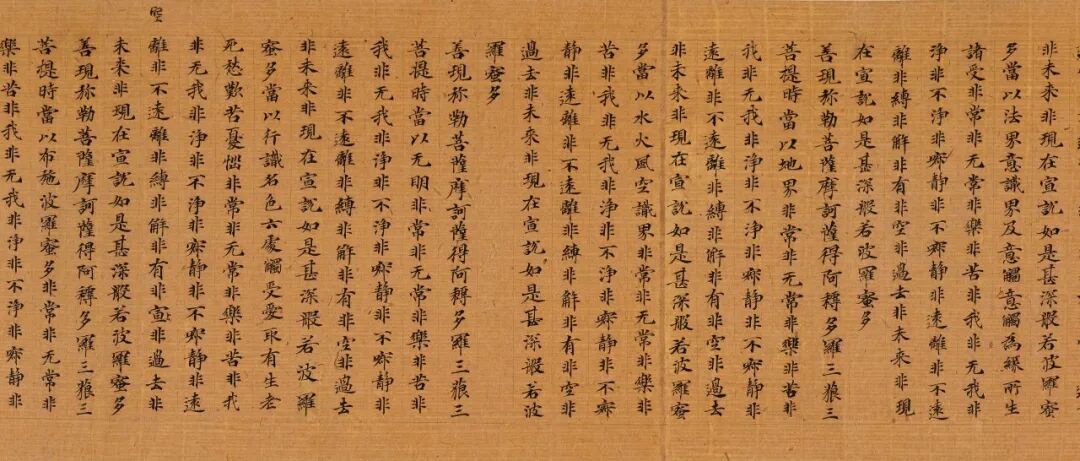 非未来非現在宣說如是甚深般若波羅蜜
多當以法界意識界及意觸意觸為緣所生
諸受非常非无常非樂非苦非我非无我非
淨非不淨非寂静非不寂静非遠離非不遠
離非縛非解非有非空非過去非未来非現
在宣說如是甚深般若波羅蜜多
善現称勒菩薩摩訶薩得阿耨多羅三藐三
菩提時當以地界非常非无常非樂非苦非
我非无我非淨非不淨非寂静非不寂静非
遠離非不遠離非縛非解非有非空非過去
非未来非現在宣說如是甚深般若波羅蜜
多當以水火風空識界非常非无常非樂非
苦非我非无我非淨非不淨非寂静非不寂
静非遠離非不遠離非縛非解非有非空非
過去非未来非現在宣說如是甚深般若波
羅蜜多
善現称勒菩薩摩訶薩得阿耨多羅三藐三
菩提時當以无明非常非无常非樂非苦非
我非无我非淨非不淨非寂静非不寂静非
遠離非不遠離非縛非解非有非空非過去
非未来非現在宣說如是甚深般若波羅
蜜多當以行識名色六處觸受愛取有生老
死愁歎苦憂惱非常非无常非樂非苦非我
非无我非淨非不淨非寂静非不寂静非遠
空
離非不遠離非縛非解非有非宣非過去非
未来非現在宣說如是甚深般若波羅蜜多
善現称勒菩薩摩訶薩得阿耨多羅三藐三
菩提時當以布施波羅蜜多非常非无常非
樂非苦非我非无我非淨非不淨非寂静非